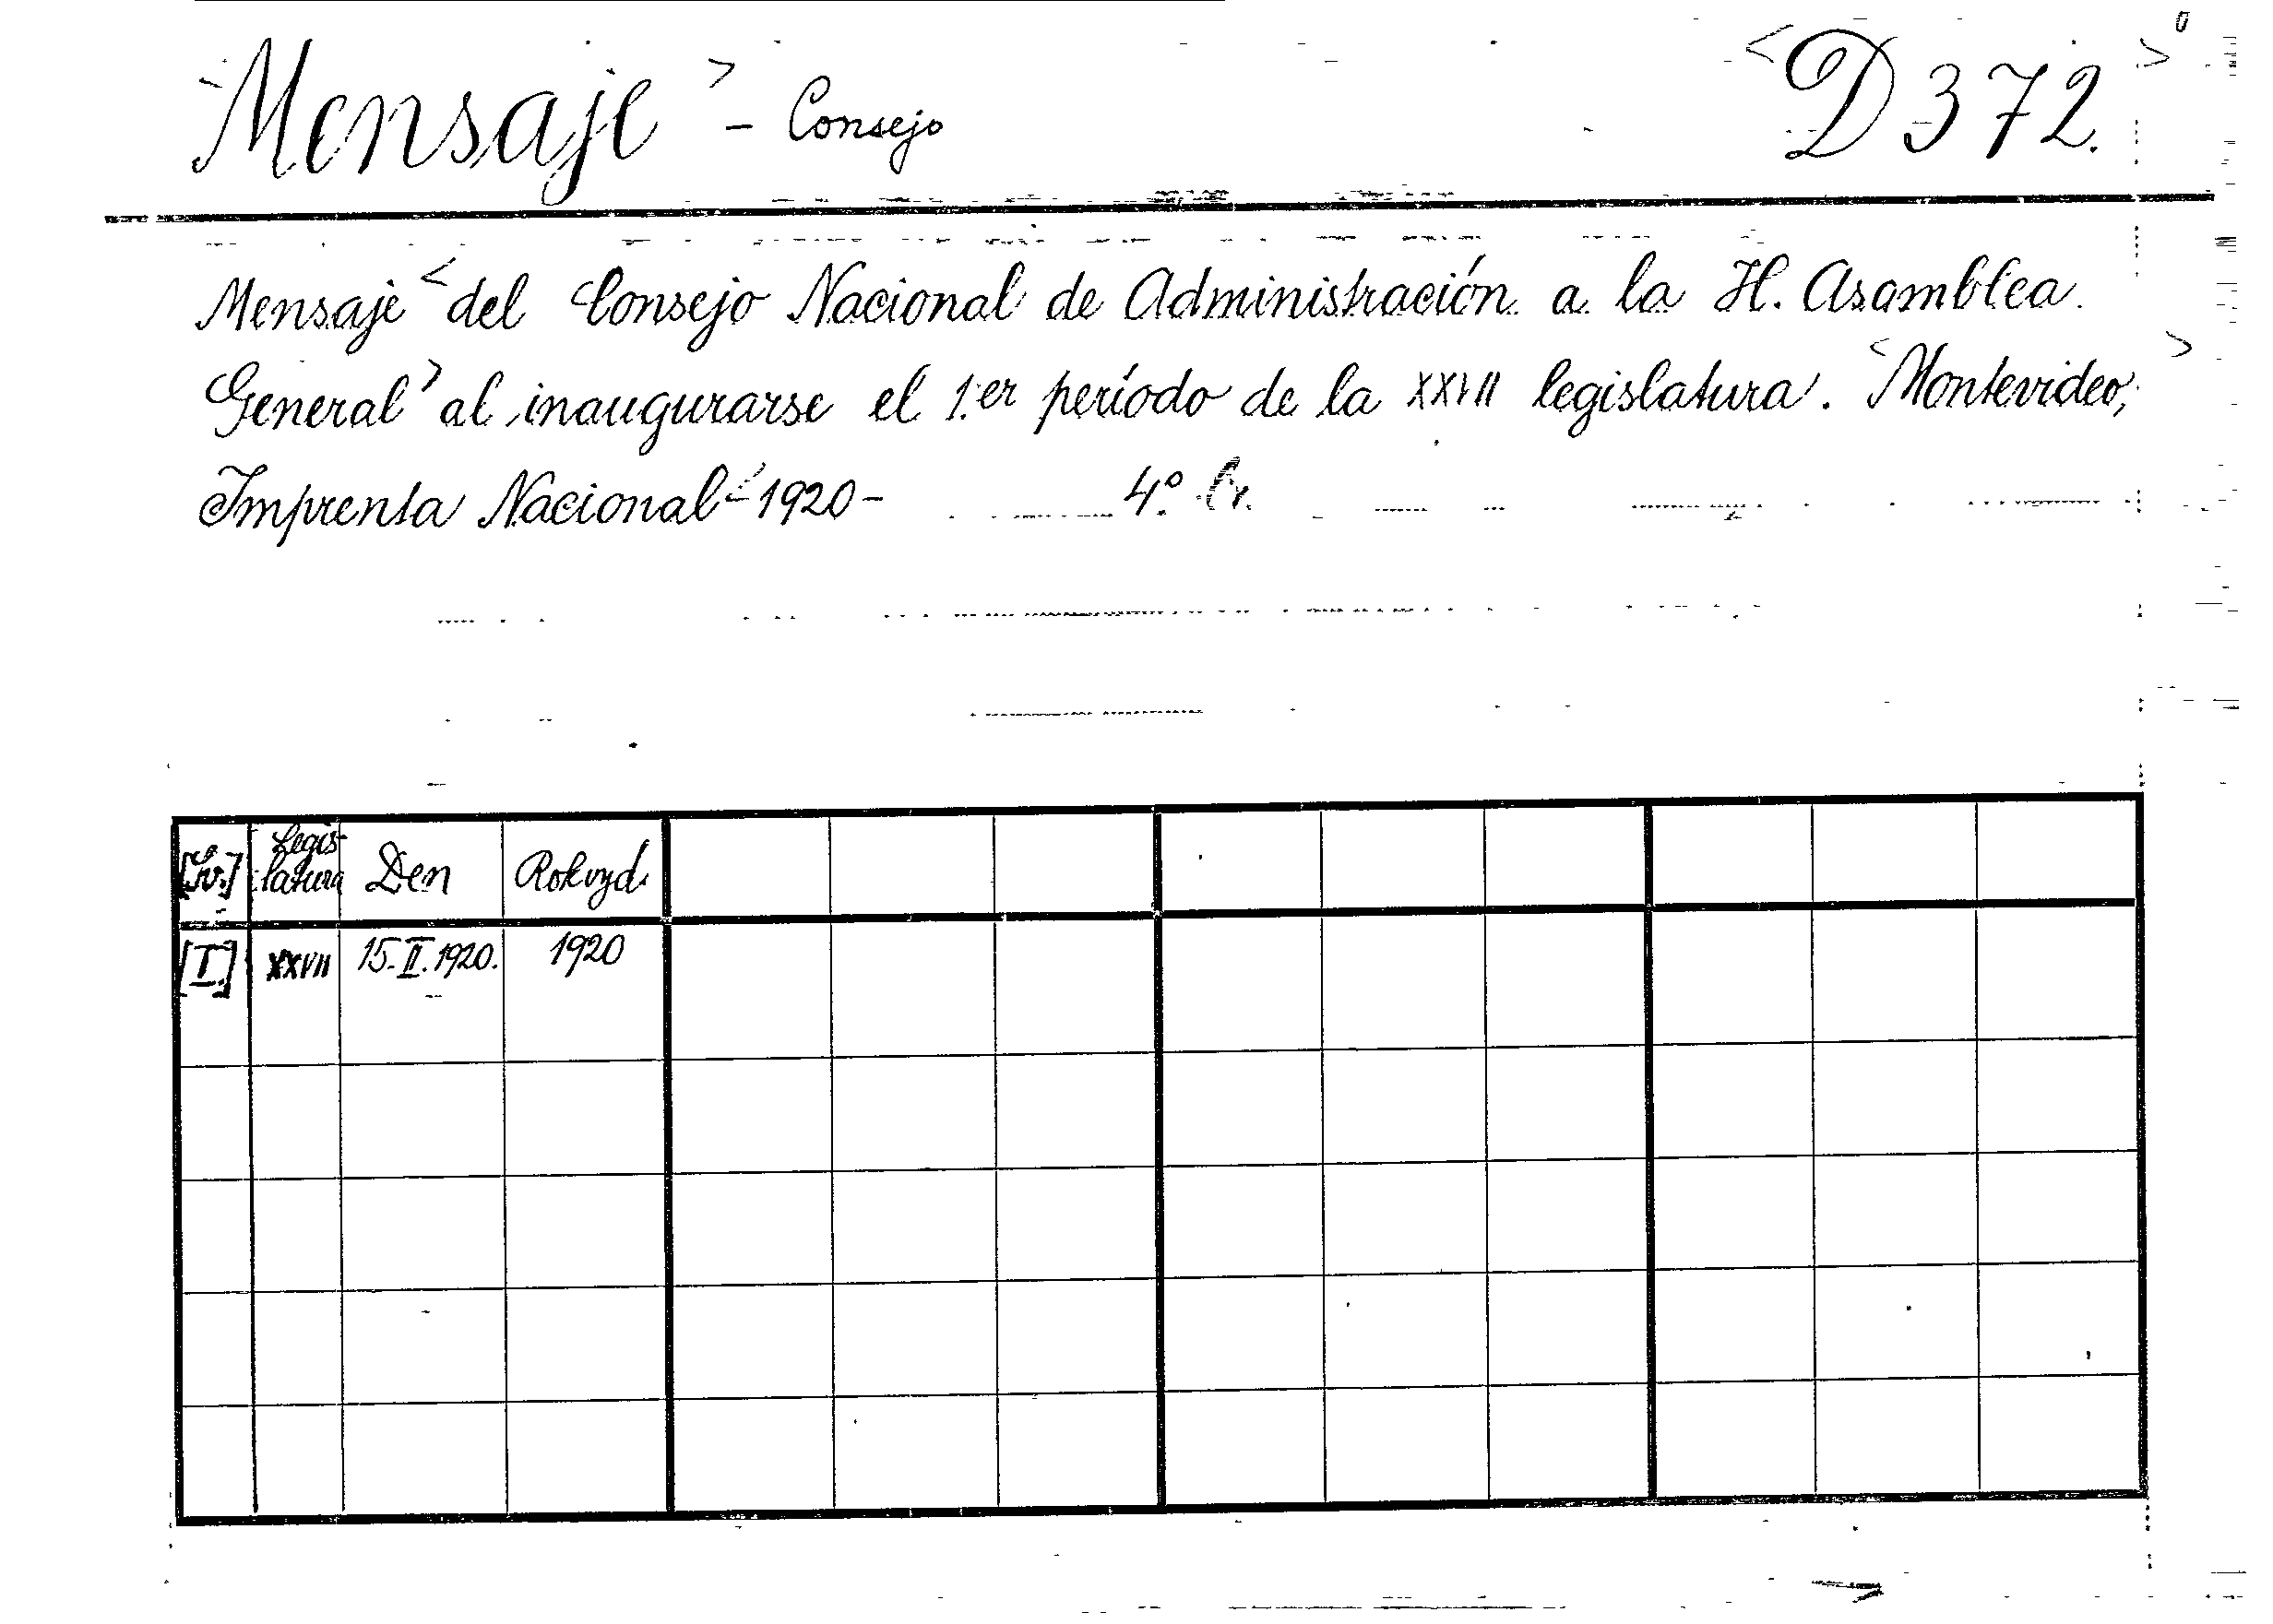 Mensaje > - Consejo <D 372.>
Mensaje < del Consejo Nacional de Administración a la H. Asamblea
General > al inaugurarse el 1.er período de la XXVII legislatura. <Montevideo,>
Imprenta Nacional < 1920 - 4°.
[Sv.] Legis-latura Den Rok vyd.
[I.] XXVII 15.II.1920. 1920